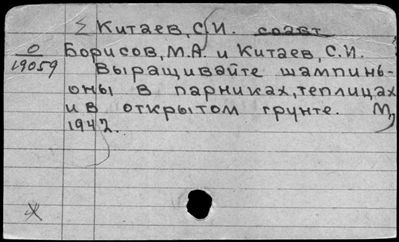 Китаев, С.И. соавт
О
19059
Борисов, М.А. и Китаев, С.И.
Выращивайте шампинь-
оны в парниках, теплицах
и в открытом грунте. М,
1947.